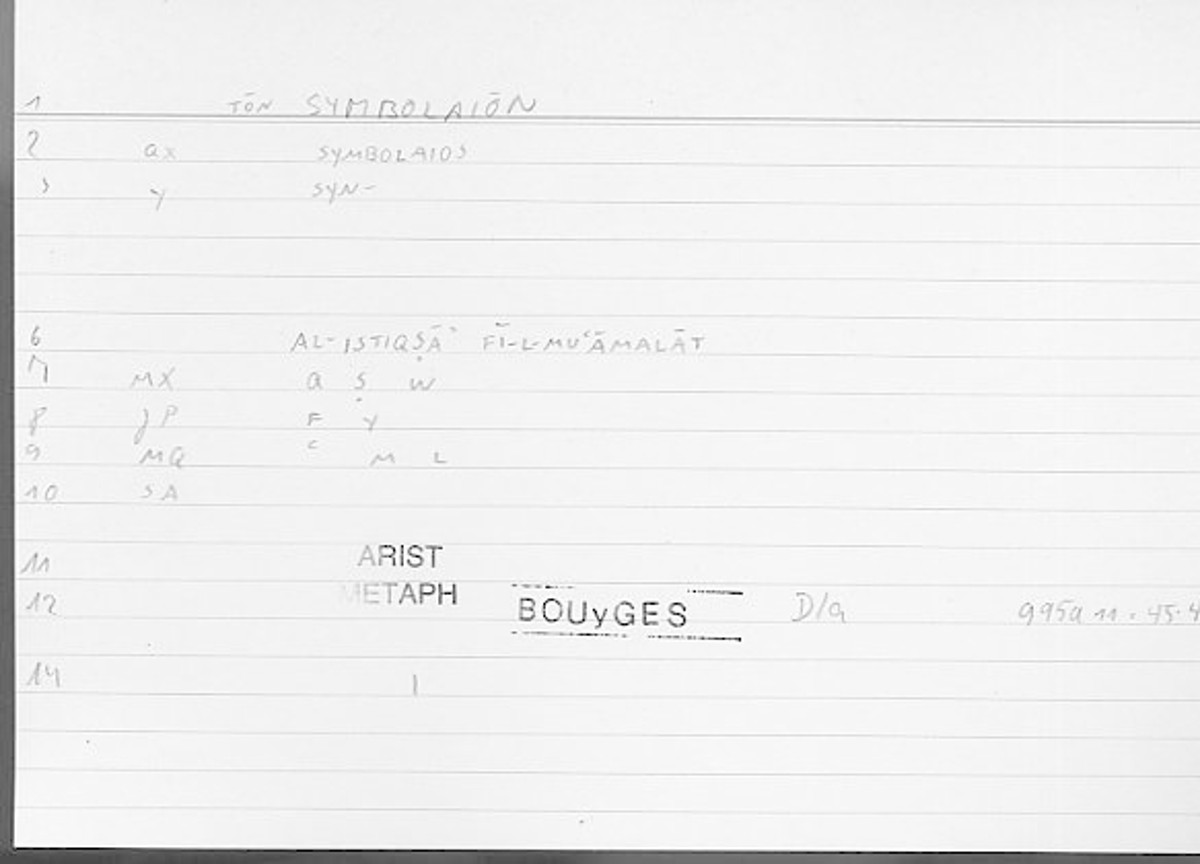 1 TŌN SYMBOLAIŌN
2 ax SYMBOLAIOS
3 y SYN-
6 AL-ISTIQṢĀʾ FĪ-L-MUʿĀMALĀT
7 MX Q Ṣ W
8 JP F Y
9 MQ ʿ M L
10 SA
11 ARIST
12 METAPH BOUyGES D/a 995a 11 . 45.4
14 1